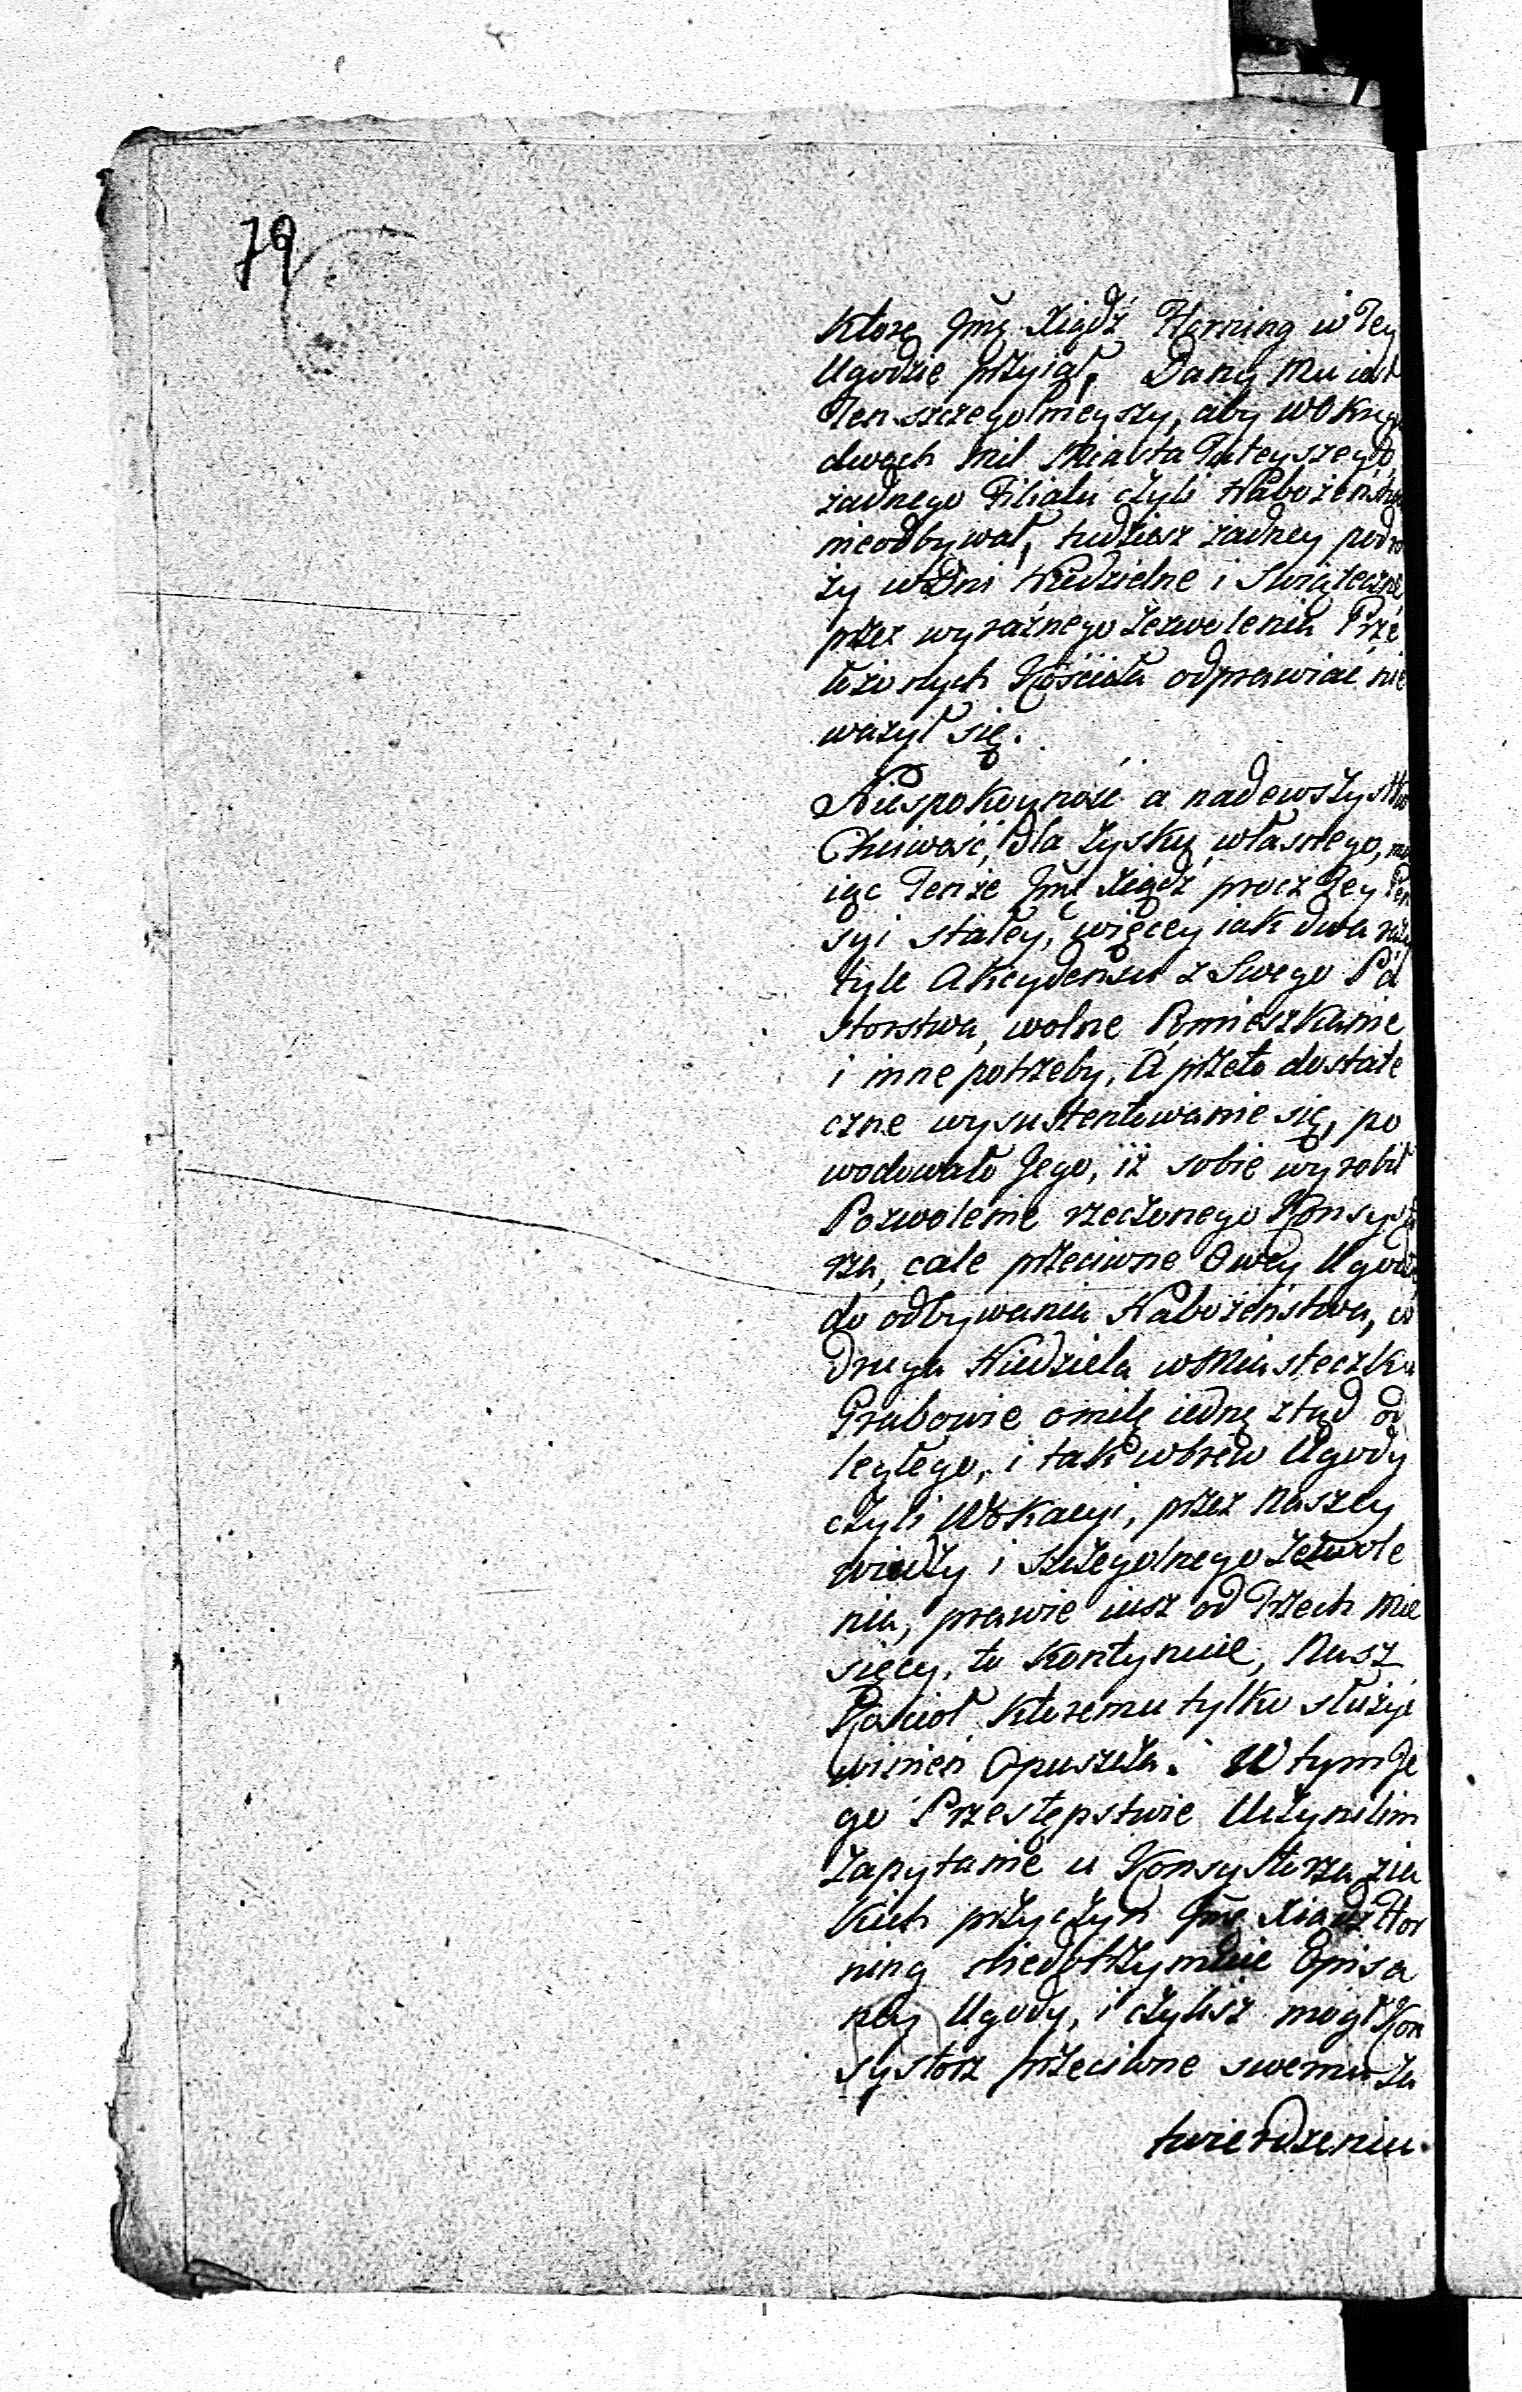 79
Ktorę Jmę Xiądź Horning w Tey
Ugodzie przyiął, Dany mu iest
Ten szczegolnieyszy, aby w Okręgu
dwoch mil Miasta Tuteyszego,
żadnego Filialu czyli Nabożeństwa
nieodbywał, tudziesz żadney podro
ży w Dni Niedzielne i Swiąteczne
przez wyraźnego Zezwolenia Prze
łożonych Kościoła odprawiać nie
ważył się.
Niespokoyność a nadewszystko
Chciwość, dla zysku własnego, ma
iąc Tenże Jmę Xiądz procz Jey Pen
syi stałey, więcey iak dwa razy
tyle Akcydensu z Swego Pa
storstwa, wolne Pomieszkanie
i inne potrzeby, A przeto dostate
czne wysustentowanie się, po
wodowało Jego, iż sobie wyrobił
Pozwolenie rzeczonego Konsysto
rza, cale przeciwne Owey Ugodzie
do odbywania Nabożeństwa, co
druga Niedziela w Miasteczku
Grabowie o milę iedną ztąd od
ległego, i tak wbrew Ugody
czyli Wokacyi, przez Naszey
wiedzy i szczegolnego Zezwole
nia, prawie iusz od Trzech Mie
sięcy, to kontynuie, Nasz
Kościoł ktoremu tylko służyć
winien Opuszcza. W tym Je
go Przestępstwie Uczynilim
Zapytanie u Konsystorza zia
kich przyczyn Jmę Xiądz Hor
ning niedotrzymuie Opisa
ney Ugody, i czylisz mogł Kon
systorz przeciwne swemu Za
twierdzeniu